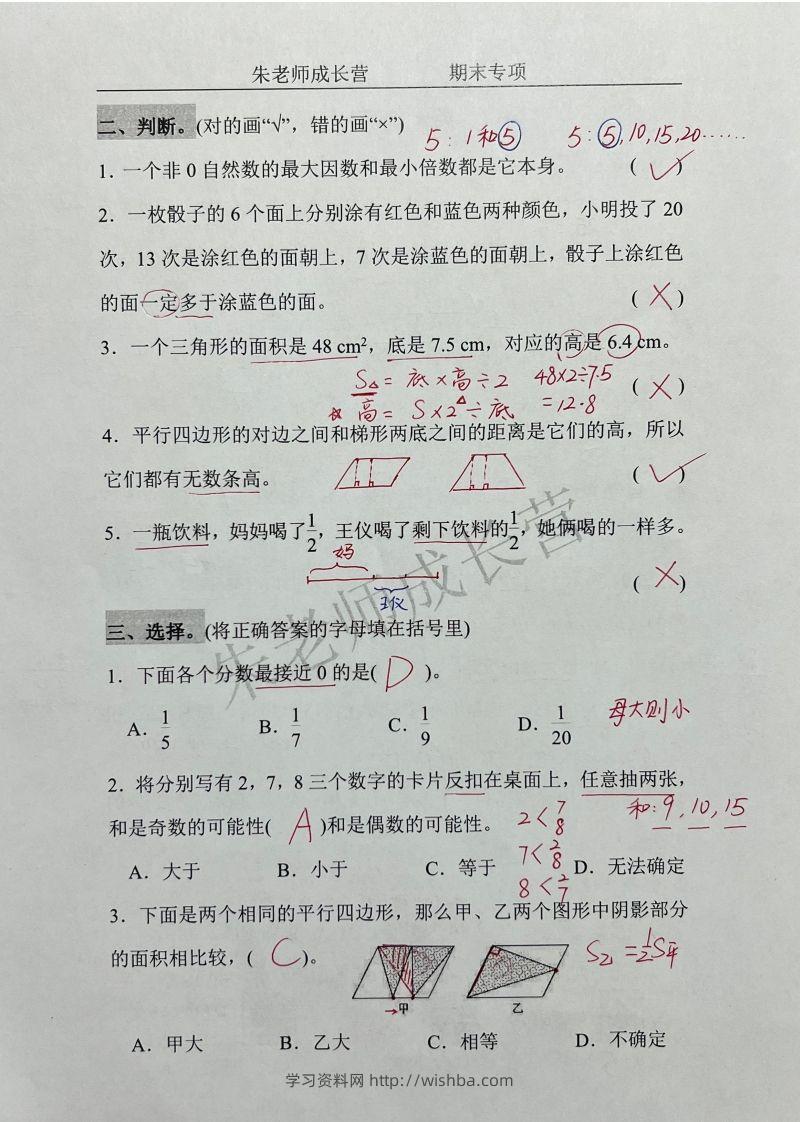 朱老师成长营 期末专项
二、判断。(对的画“√”，错的画“×”)
5：1和⑤ 5：⑤,10,15,20……
1．一个非 0 自然数的最大因数和最小倍数都是它本身。 ( √ )
2．一枚骰子的 6 个面上分别涂有红色和蓝色两种颜色，小明投了 20
次，13 次是涂红色的面朝上，7 次是涂蓝色的面朝上，骰子上涂红色
的面一定多于涂蓝色的面。 ( × )
3．一个三角形的面积是 48 cm²，底是 7.5 cm，对应的高是 6.4 cm。
S△= 底×高÷2 48×2÷7.5 ( × )
☆高= S×2÷底 =12.8
4．平行四边形的对边之间和梯形两底之间的距离是它们的高，所以
它们都有无数条高。 ( √ )
5．一瓶饮料，妈妈喝了1/2，王仪喝了剩下饮料的1/2，她俩喝的一样多。
妈
( × )
王仪
三、选择。(将正确答案的字母填在括号里)
1．下面各个分数最接近 0 的是( D )。
A．1/5 B．1/7 C．1/9 D．1/20 母大则小
2．将分别写有 2，7，8 三个数字的卡片反扣在桌面上，任意抽两张，
和是奇数的可能性( A )和是偶数的可能性。 2<7 8 和:9,10,15
A．大于 B．小于 C．等于 7<2 8 D．无法确定
8<2 7
3．下面是两个相同的平行四边形，那么甲、乙两个图形中阴影部分
的面积相比较，( C )。 S乙=1/2S平
→甲 乙
A．甲大 B．乙大 C．相等 D．不确定
学习资料网 http://wishba.com
朱老师成长营